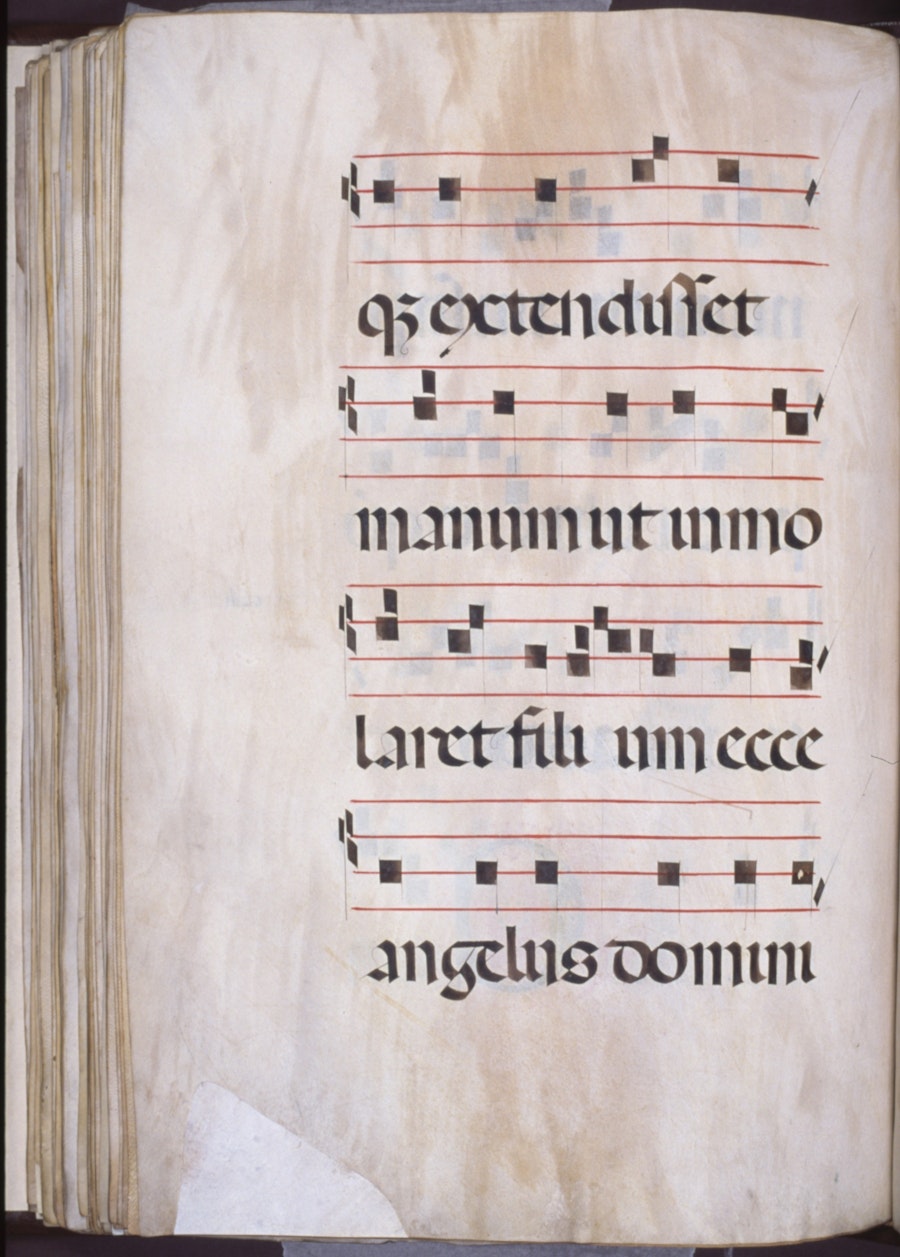 qꝫ extendisset
manum ut inmo
laret fili um ecce
angelus domini